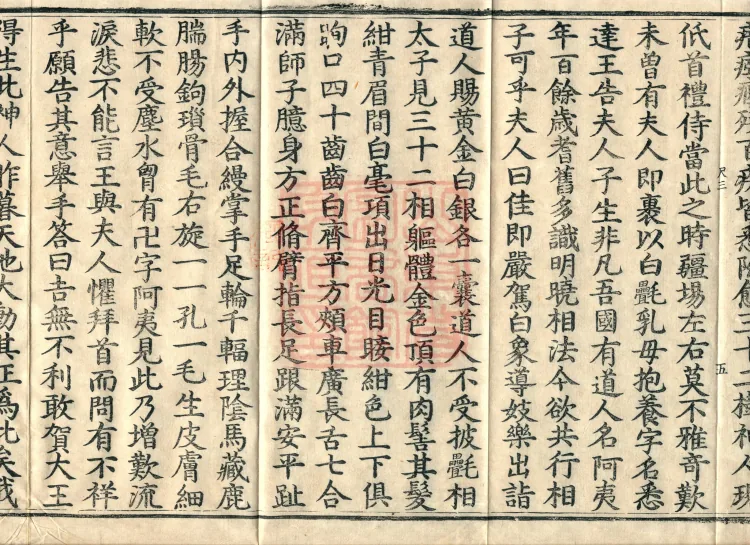 百疾皆悉除愈三十二樹神人現
尺三
五
低首禮侍當此之時疆場左右莫不雅奇歎
未曾有夫人即裹以白氎乳母抱養字名悉
達王告夫人子生非凡吾國有道人名阿夷
年百餘歲耆舊多識明曉相法今欲共行相
子可乎夫人曰佳即嚴駕白象導妓樂出詣
道人賜黃金白銀各一囊道人不受披氎相
太子見三十二相軀體金色頂有肉髻其髮
紺青眉間白毫項出日光目睫紺色上下俱
眴口四十齒齒白齊平方頰車廣長舌七合
滿師子臆身方正脩臂指長足跟滿安平趾
手內外握合縵掌手足輪千輻理陰馬藏鹿
腨腸鉤鎖骨毛右旋一一孔一毛生皮膚細
軟不受塵水胷有卍字阿夷見此乃增歎流
淚悲不能言王與夫人懼拜首而問有不祥
乎願告其意舉手答曰吉無不利敢賀大王
得生此神人昨暮天地大動其正為此矣我